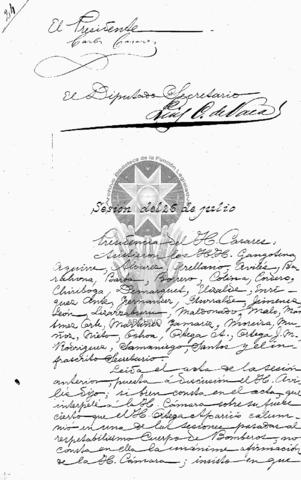 24
El Presidente
Carlos Casares
El Diputado Secretario
Luis C. de Vaca
Sesión del 26 de julio
Presidencia del H. Casares.
Asistieron los HH. Gangotena
Aguirre, Alvarez Arellano, Aviles, Ba-
rahona, Borrero, Cordero,
Chiriboga, Enri-
quez Fernandez, Iturralde, Jimenez
León, Lizarzaburu, Maldonado, Mata, Mar-
tinez Martinez Moreira, Mu-
ñoz, Nieto, Ochoa, Ortega A., Ortega J. M.
Rodriguez, Samaniego, Santos y el in-
frascrito Secretario.
Leída el acta de la sesión
anterior puesta a discusion el H. Avi-
les dijo; si bien consta en el acta, que
interpelé a la H. Cámara sobre si fuese
cierto que el H. Ortega Aparicio calum-
nió en una de las sesiones pasadas al
respetabilísimo Cuerpo de Bomberos, no
consta en ella la unánime afirmación
de la H. Cámara; insisto en que